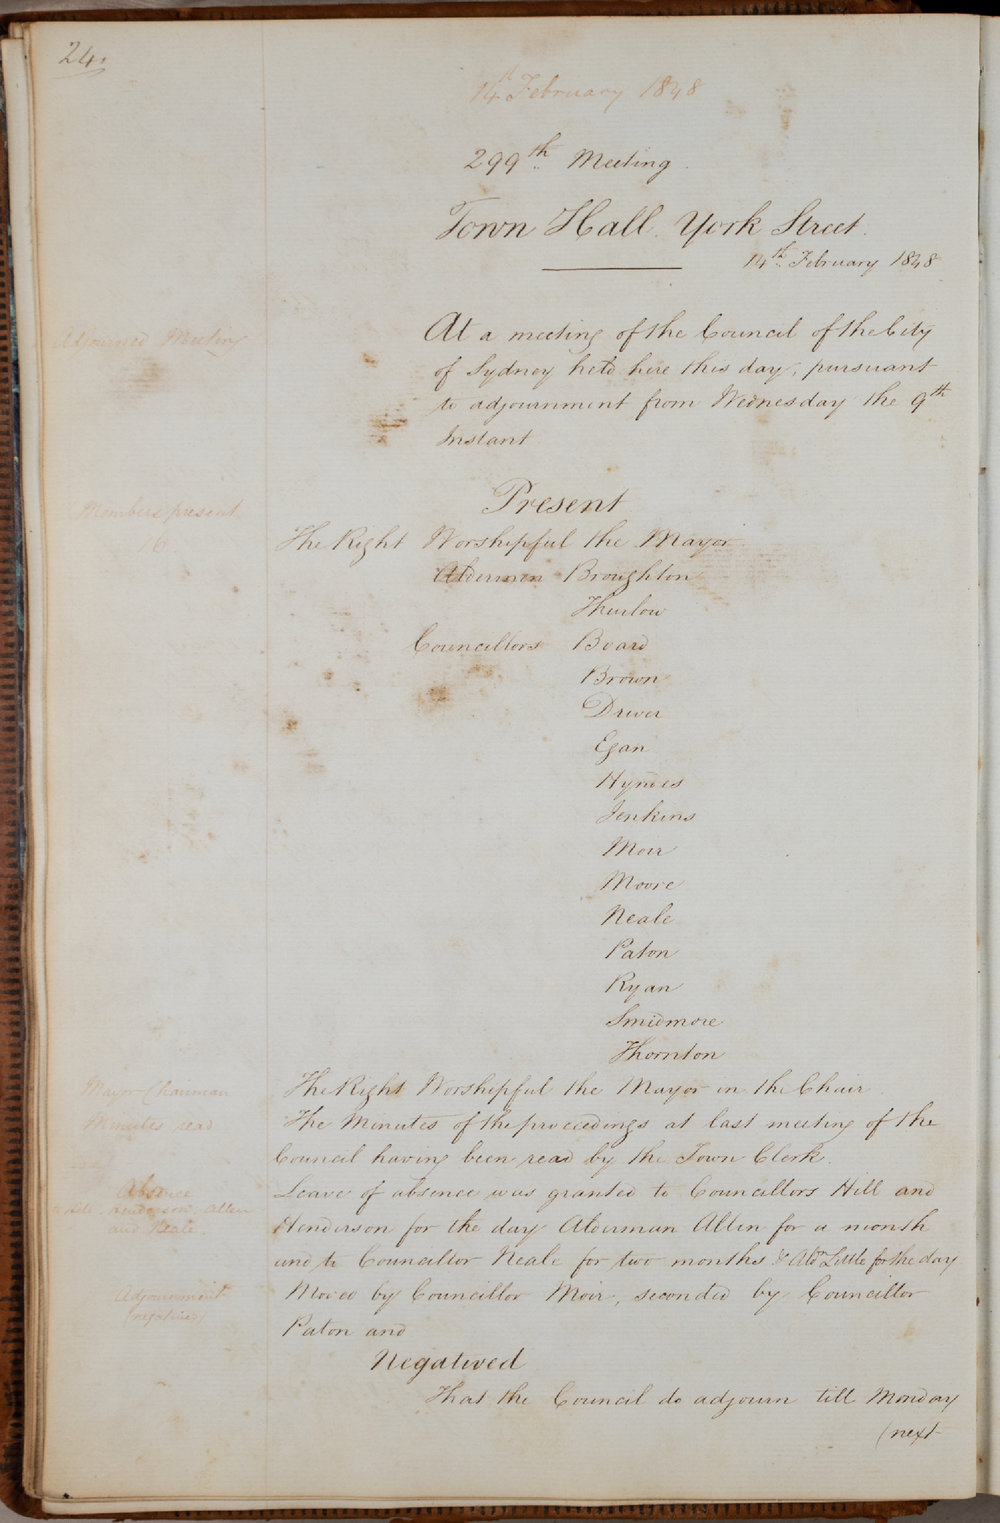 24.
14th February 1848
299th Meeting.
Town Hall. York Street.
14th February 1848
Adjourned Meeting
At a meeting of the Council of the City
of Sydney held here this day, pursuant
to adjournment from Wednesday the 9th
Instant
Present
Members present
16
The Right Worshipful the Mayor
Aldermen Broughton
Thurlow
Councillors Board
Brown
Driver
Egan
Hyndes
Jenkins
Moir
Moore
Neale
Paton
Ryan
Smidmore
Thornton
Mayor Chairman
The Right Worshipful the Mayor in the Chair.
Minutes read
The Minutes of the proceedings at last meeting of the
Council having been read by the Town Clerk.
Absence
to Hill, Henderson, Allen
and Neale
Leave of absence was granted to Councillors Hill and
Henderson for the day Alderman Allen for a month
and to Councillor Neale for two months & Aldn Little for the day
Adjournment
(negatived)
Moved by Councillor Moir, seconded by Councillor
Paton and
Negatived
That the Council do adjourn till Monday
(next